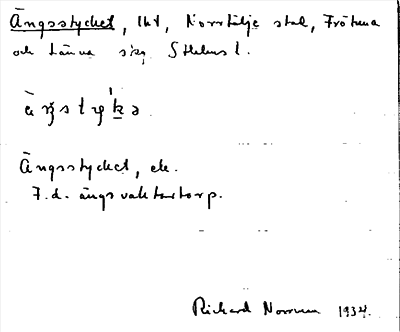 Ängsstycket, lht, Norrtälje stad, Frötuna
och Länna skg Sthlms l.
Ängsstycket, ele.
F.d. ängsvaktartorp.
Richard Norrman 1934.